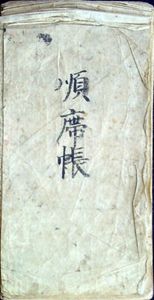 順席帳